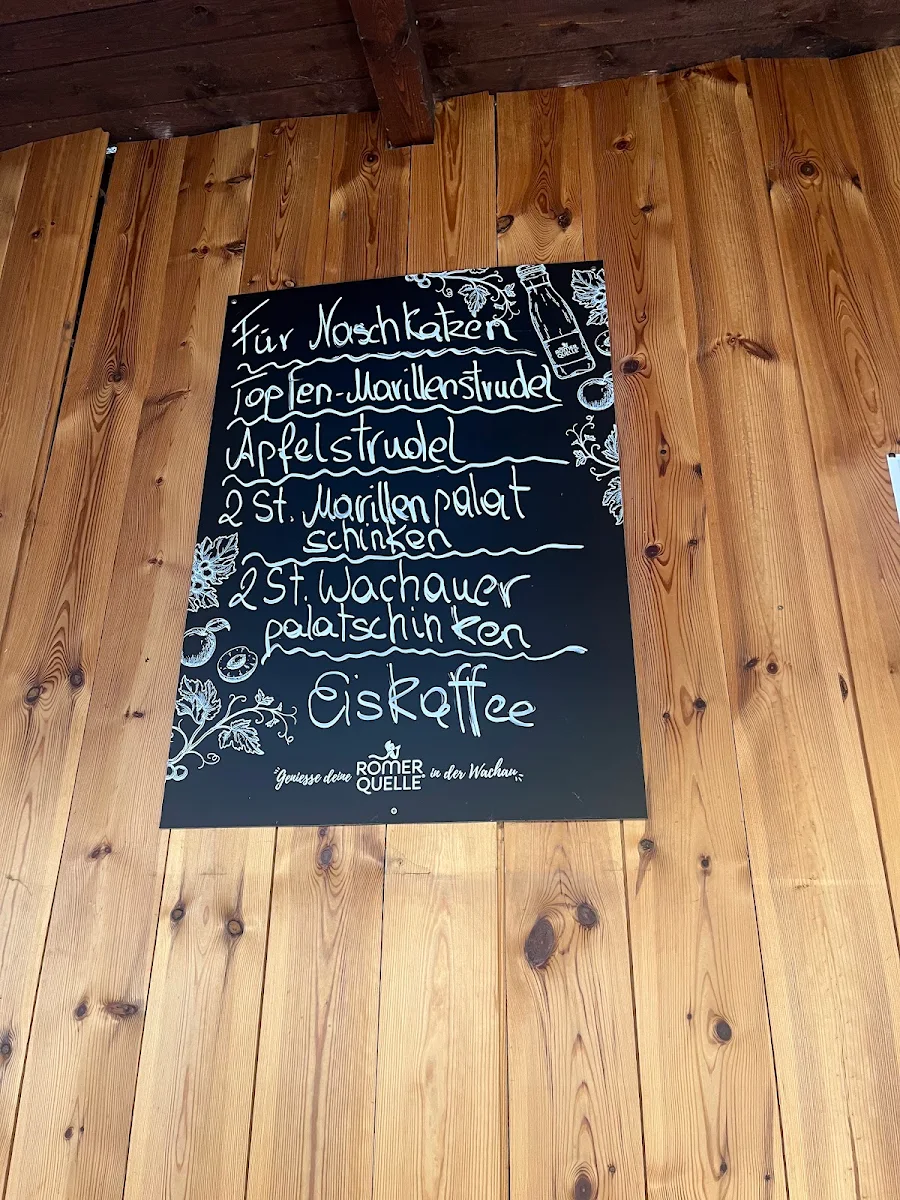 Für Naschkatzen
Topfen-Marillenstrudel
Apfelstrudel
2 St. Marillenpalat
schinken
2 St. Wachauer
palatschinken
Eiskaffee
Geniesse deine RÖMER QUELLE in der Wachau